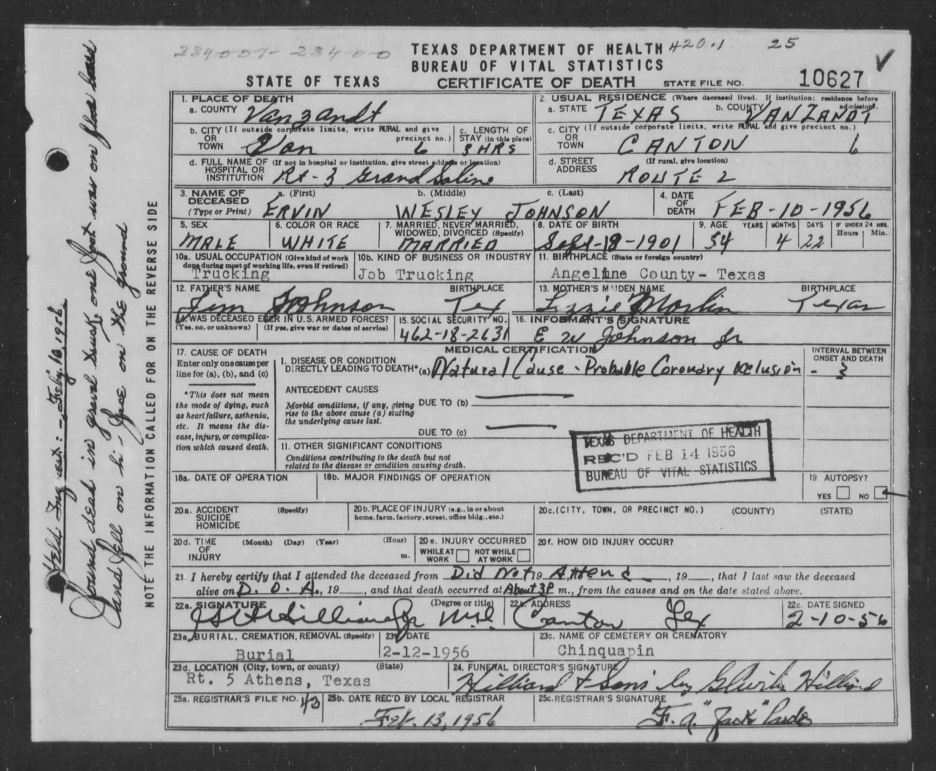 TEXAS DEPARTMENT OF HEALTH 420.1 25
BUREAU OF VITAL STATISTICS
STATE OF TEXAS CERTIFICATE OF DEATH STATE FILE NO. 10627
1. PLACE OF DEATH
a. COUNTY Vanzandt
2. USUAL RESIDENCE (Where deceased lived. If institution: residence before admission).
a. STATE TEXAS b. COUNTY VANZANDT
b. CITY (If outside corporate limits, write RURAL and give precinct no.) OR TOWN Van 6
c. LENGTH OF STAY (in this place) 3 HRS
c. CITY (If outside corporate limits, write RURAL and give precinct no.) OR TOWN CANTON 6
d. FULL NAME OF (If not in hospital or institution, give street address or location) HOSPITAL OR INSTITUTION Rt-3 Grand Saline
d. STREET ADDRESS (If rural, give location) ROUTE 2
3. NAME OF DECEASED (Type or Print) a. (First) ERVIN b. (Middle) WESLEY c. (Last) JOHNSON
4. DATE OF DEATH FEB-10-1956
5. SEX MALE
6. COLOR OR RACE WHITE
7. MARRIED, NEVER MARRIED, WIDOWED, DIVORCED (Specify) MARRIED
8. DATE OF BIRTH Sept-18-1901
9. AGE YEARS 54 MONTHS 4 DAYS 22 IF UNDER 24 HRS. Hours Min.
10a. USUAL OCCUPATION (Give kind of work done during most of working life, even if retired) Trucking
10b. KIND OF BUSINESS OR INDUSTRY Job Trucking
11. BIRTHPLACE (State or foreign country) Angeline County- Texas
12. FATHER'S NAME Jim Johnson BIRTHPLACE Tex
13. MOTHER'S MAIDEN NAME Lizzie Marlin BIRTHPLACE Texas
WAS DECEASED EVER IN U.S. ARMED FORCES? (Yes, no, or unknown) (If yes, give war or dates of service)
15. SOCIAL SECURITY NO. 462-18-2631
16. INFORMANT'S SIGNATURE E W Johnson Jr
MEDICAL CERTIFICATION
17. CAUSE OF DEATH
Enter only one cause per line for (a), (b), and (c)
*This does not mean the mode of dying, such as heart failure, asthenia, etc. It means the disease, injury, or complication which caused death.
I. DISEASE OR CONDITION DIRECTLY LEADING TO DEATH* (a) Natural Cause - Probable Coronary occlusion
INTERVAL BETWEEN ONSET AND DEATH
ANTECEDENT CAUSES
Morbid conditions, if any, giving rise to the above cause (a) stating the underlying cause last.
DUE TO (b)
DUE TO (c)
II. OTHER SIGNIFICANT CONDITIONS
Conditions contributing to the death but not related to the disease or condition causing death.
TEXAS DEPARTMENT OF HEALTH
REC'D FEB 14 1956
BUREAU OF VITAL STATISTICS
18a. DATE OF OPERATION
18b. MAJOR FINDINGS OF OPERATION
19. AUTOPSY? YES NO
20a. ACCIDENT SUICIDE HOMICIDE (Specify)
20b. PLACE OF INJURY (e.g., in or about home, farm, factory, street, office bldg., etc.)
20c. (CITY, TOWN, OR PRECINCT NO.) (COUNTY) (STATE)
20d. TIME OF INJURY (Month) (Day) (Year) (Hour) m.
20e. INJURY OCCURRED WHILE AT WORK NOT WHILE AT WORK
20f. HOW DID INJURY OCCUR?
21. I hereby certify that I attended the deceased from Did Not 19 Attend, 19, that I last saw the deceased
alive on D. O. A., 19, and that death occurred at About 3P m., from the causes and on the date stated above.
22a. SIGNATURE (Degree or title) Hilliard Jr M.D.
22b. ADDRESS Canton Tex
22c. DATE SIGNED 2-10-56
23a. BURIAL, CREMATION, REMOVAL (Specify) Burial
23b. DATE 2-12-1956
23c. NAME OF CEMETERY OR CREMATORY Chinquapin
23d. LOCATION (City, town, or county) (State) Rt. 5 Athens, Texas
24. FUNERAL DIRECTOR'S SIGNATURE Hilliard & Sons by Hilliard
25a. REGISTRAR'S FILE NO. 43
25b. DATE REC'D BY LOCAL REGISTRAR Feb. 13, 1956
25c. REGISTRAR'S SIGNATURE F. A. "Jack"
NOTE THE INFORMATION CALLED FOR ON THE REVERSE SIDE
Found dead in gravel truck, one foot was on floor board
and fell on hi- face on the ground